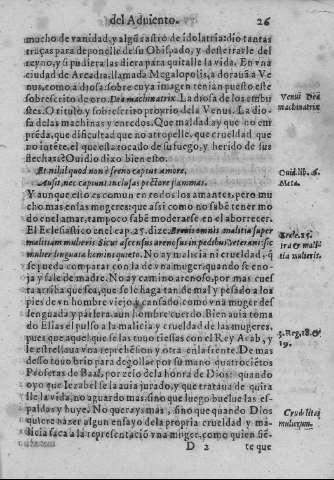 del Aduiento. 26
mucho de vanidad, y algũ rastro de idolatria: dio tantas
traças para deponelle de su Obispado, y desterrarle del
reyno, y si pudiera las diera para quitalle la vida. En vna
ciudad de Arcadia, llamada Megalopolis, adorauã a Ve-
nus, como a diosa, sobre cuya imagen tenian puesto este
sobrescrito de oro. Dea machinatrix. La diosa de los embus
tes. O titulo y sobrescrito proprio de la Venus. La dio-
sa de las machinas y enredos. Que maldad ay que no em
prẽda, que dificultad que no atropelle, que crueldad que
no intẽte, el que esta tocado de su fuego, y herido de sus
flechas? Ouidio dixo bien esto.
Et nihil quod non effreno captut amore,
Ausit, nec capiunt inclusas pectore flammas.
Y aunque esto es comun en todos los amantes, pero mu
cho mas en las mugeres: que assi como no sabẽ tener mo
do en el amar, tampoco sabẽ moderarse en el aborrecer.
El Eclesiastico en el cap. 25. dize. Breuis omnis malitia super
malitiam mulieris. Sicut ascensus arenosus in pedibus veterani: sic
mulier linguata homini quieto. No ay malicia ni crueldad, q̃
se pueda comparar con la de vna muger, quando se eno-
ja y sale de madre. No ay camino arenoso, por mas cues
ta arriba que sea, que se le haga tan de mal y pesado a los
pies de vn hombre viejo y cansado, como vna muger des
lenguada y parlera, a vn hombre cuerdo. Bien auia toma
do Elias el pulso a la malicia y crueldad de las mugeres,
pues que aquel que se las tuuo tiessas con el Rey Acab, y
le esperaua vna reprehẽsion y otra en la frente. De mas
desso tuuo brio para degollar por su mano quatrociẽtos
Profetas de Baal, por zelo de la honra de Dios: quando
oyo que Iezabel se la auia jurado, y que trataua de quita
lle la vida, no aguardo mas, sino que luego buelue las es-
paldas y huye. No querays mas, sino que quando Dios
quiere hazer algun ensayo de la propria crueldad y ma-
licia saca a la representaciõ vna muger, como quien siẽ-
D 2 te que
Venus Dea
machinatrix
Ouid. lib. 6.
Meta.
Eccle. 25.
ira & mali
tia mulieris.
3. Reg. 18. &
19.
Crudelitas
mulierum.